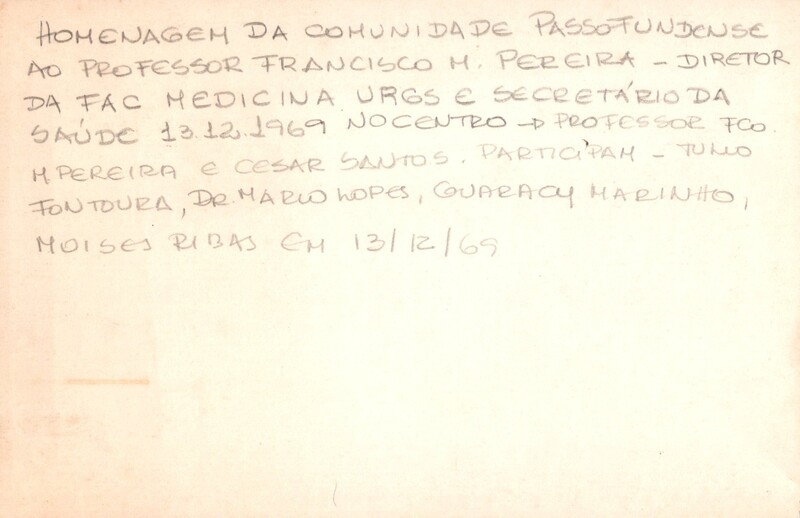 HOMENAGEM DA COMUNIDADE PASSOFUNDENSE
AO PROFESSOR FRANCISCO M. PEREIRA – DIRETOR
DA FAC MEDICINA URGS E SECRETÁRIO DA
SAÚDE 13.12.1969 NO CENTRO → PROFESSOR FCO.
M. PEREIRA E CESAR SANTOS. PARTICIPAM – TULIO
FONTOURA, DR. MARIO LOPES, GUARACY MARINHO,
MOISES RIBAS EM 13/12/69